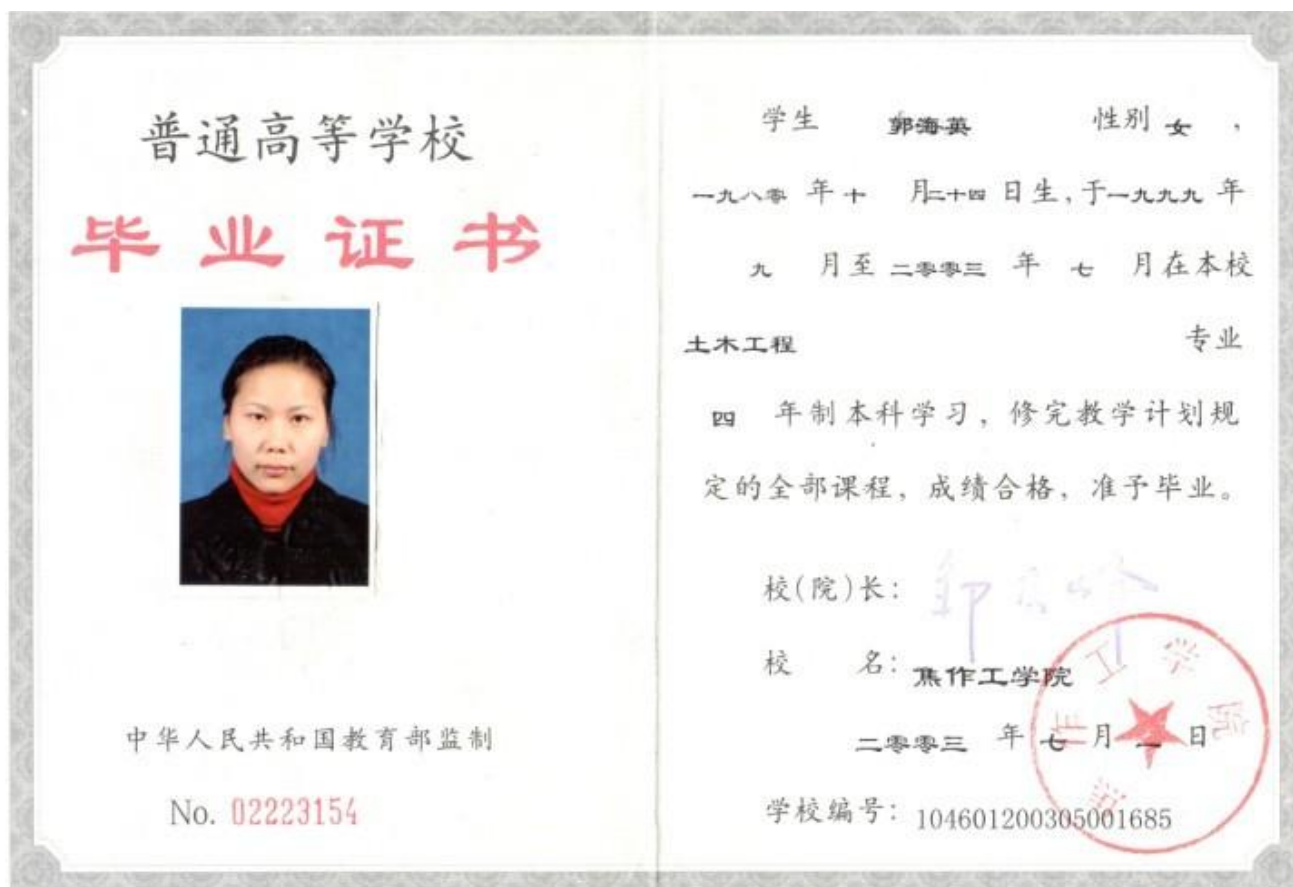 普通高等学校
毕业证书
中华人民共和国教育部监制
No. 02223154
学生 郭海英 性别 女 ,
一九八零 年 十 月 二十四 日生, 于 一九九九 年
九 月至 二零零三 年 七 月在本校
土木工程 专业
四 年制本科学习, 修完教学计划规
定的全部课程, 成绩合格, 准予毕业。
校(院)长:
校 名: 焦作工学院
二零零三 年 七 月 日
学校编号: 104601200305001685
焦作工学院